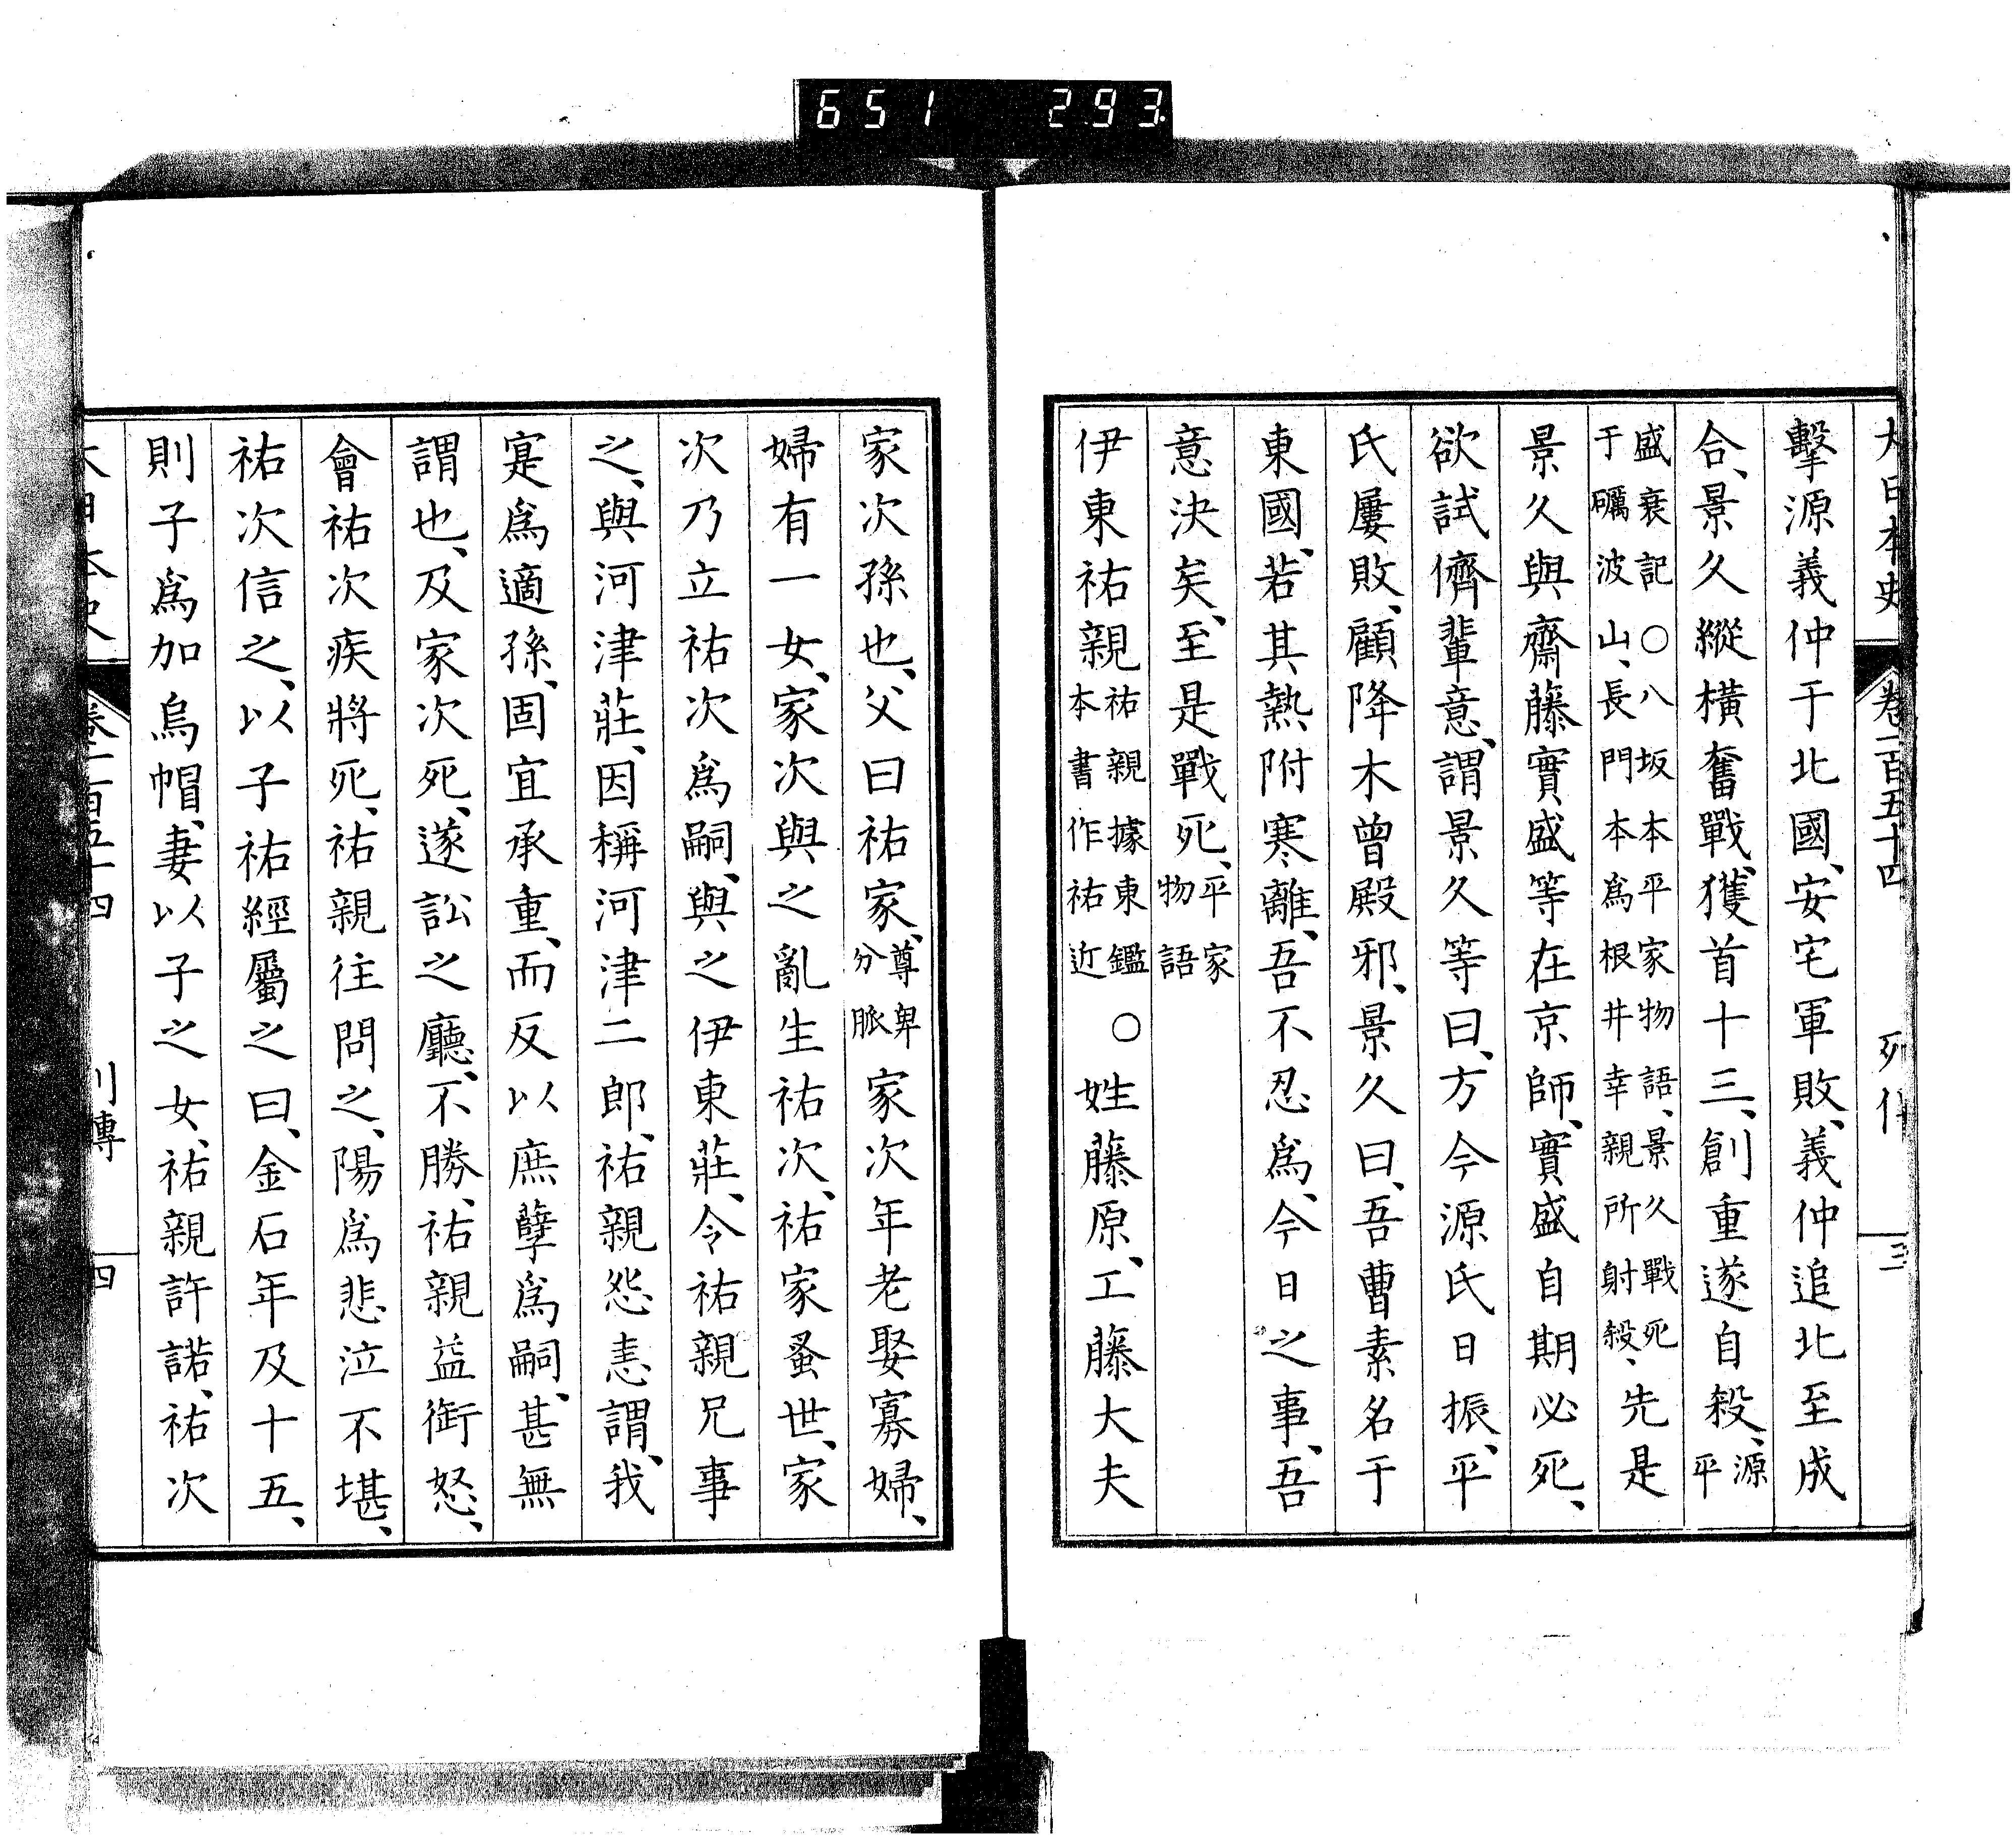 651 293
大日本史 卷二百五十四 列傳 三
擊源義仲于北國、安宅軍敗、義仲追北至成
合、景久縱橫奮戰、獲首十三、創重遂自殺、源平
盛衰記○八坂本平家物語、景久戰死于礪波山、長門本爲根井幸親所射殺、先是
景久與齋藤實盛等在京師、實盛自期必死、
欲試儕輩意、謂景久等曰、方今源氏日振、平
氏屢敗、顧降木曾殿邪、景久曰、吾曹素名于
東國、若其熱附寒離、吾不忍爲、今日之事、吾
意決矣、至是戰死、平家物語
伊東祐親祐親據東鑑○本書作祐近姓藤原、工藤大夫
家次孫也、父曰祐家、尊卑分脈家次年老娶寡婦、
婦有一女、家次與之亂生祐次、祐家蚤世、家
次乃立祐次爲嗣、與之伊東莊、令祐親兄事
之、與河津莊、因稱河津二郎、祐親怨恚謂、我
寔爲適孫、固宜承重、而反以庶孽爲嗣、甚無
謂也、及家次死、遂訟之廳、不勝、祐親益銜怒、
會祐次疾將死、祐親往問之、陽爲悲泣不堪、
祐次信之、以子祐經屬之曰、金石年及十五、
則子爲加烏帽、妻以子之女、祐親許諾、祐次
大日本史 卷二百五十四 列傳 四